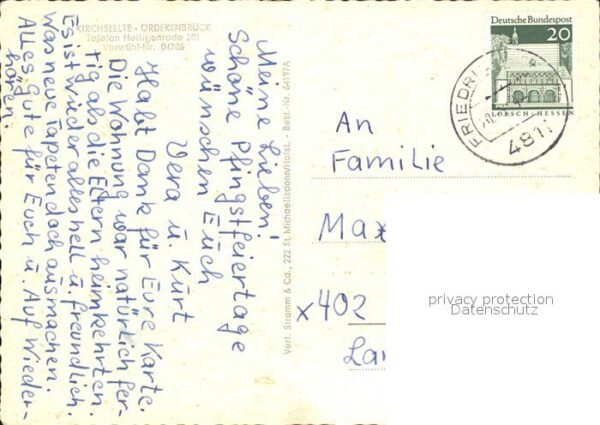 KIRCHSEELTE - ORDEKENBRÜCK
Telefon Heiligenrode 201
Vorwahl-Nr. 04206
Meine Lieben!
Schöne Pfingstfeiertage
wünschen Euch
Vera u. Kurt
Habt Dank für Eure Karte.
Die Wohnung war natürlich fer-
tig als die Eltern heimkehrten.
Es ist wieder alles hell u. freundlich.
Was neue Tapeten doch ausmachen.
Alles Gute für Euch u. Auf Wieder-
hören!
Verl. Stramm & Co., 222 St. Michaelisdonn/Holst. - Best.-Nr. 64197A
Deutsche Bundespost
20
LORSCH/HESSEN
FRIEDRI
481
An
Familie
Max
x402
Lan
privacy protection
Datenschutz